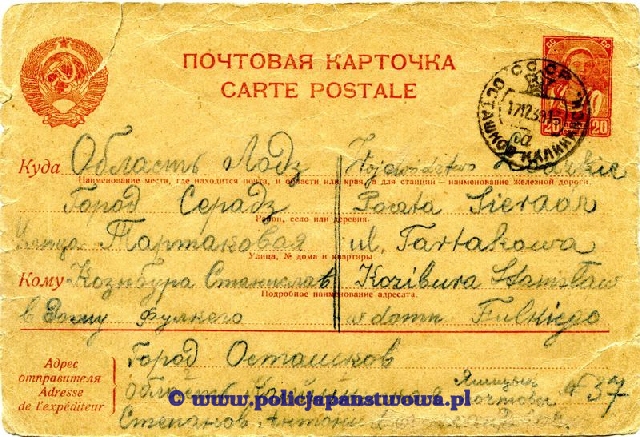 ПОЧТОВАЯ КАРТОЧКА
CARTE POSTALE
СССР
20 20
Куда Область Лодз Wojewodztwo
Наименование места, где находится почта, и области или края, а для станции – наименование железной дороги.
Город Серадз Poczta Sieradz
Район, село или деревня.
Улица Тартаковая ul. Tartakowa
Улица, № дома и квартиры
Кому Козибура Станислав Kozibura Stanisław
Подробное наименование адресата.
в Дому Фулкего w domu Fulkiego
Адрес отправителя
Adresse de l'expéditeur
Город Осташков
область Калининская Ящик почтовы № 37
© www.policjapanstwowa.pl
Степанов Антони